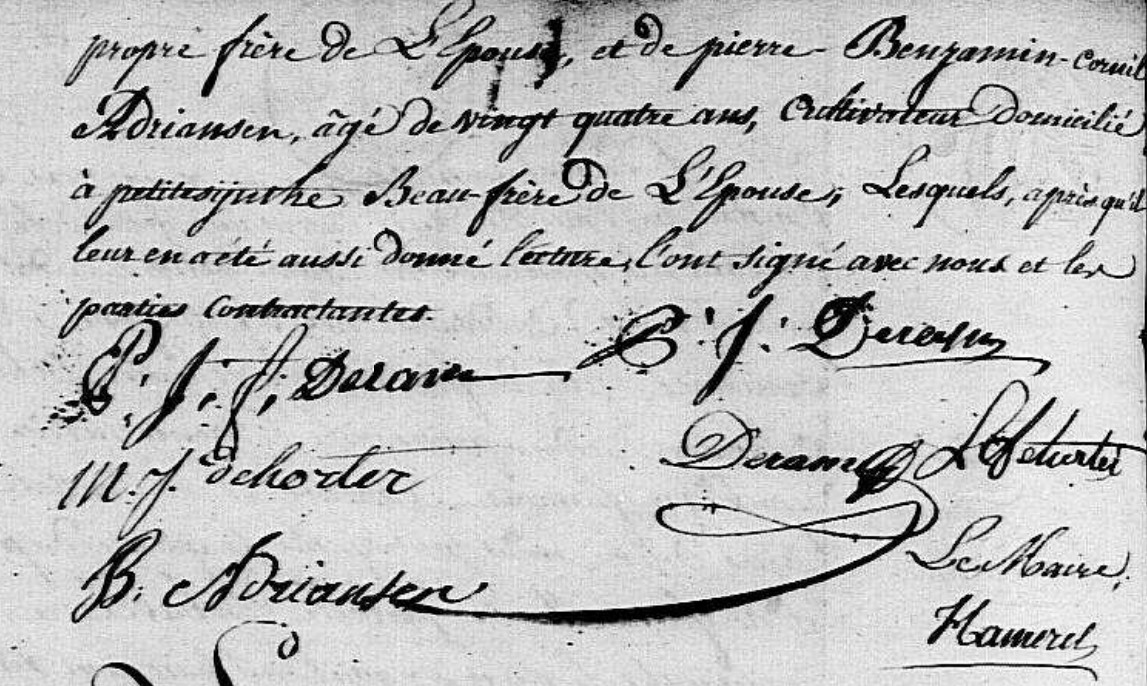 propre frère de L'Epouse, et de pierre Benjamin-cornil
Adriansen, âgé de vingt quatre ans, Cultivateur domicilié
à petitesynthe Beau-frère de L'Epouse; Lesquels, après qu'il
leur en a été aussi donné lecture, l'ont signé avec nous et les
parties Contractantes.
P. J. J. Deram P. J.
M. J. dehorter Deram
B. Adriansen Le Maire,
Hamerel